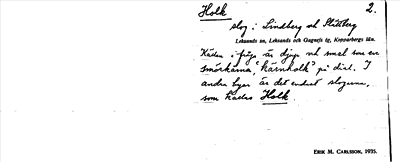 Holk 2.
slog i Lindberg och Slättberg
Leksands sn, Leksands och Gagnefs tg, Kopparbergs län.
Källan i fråga är djup och smal som en
smörkärna, "kärnholk" på dial. I
andra byar är det endast slogarna,
som kallas Holk.
ERIK M. CARLSSON, 1935.